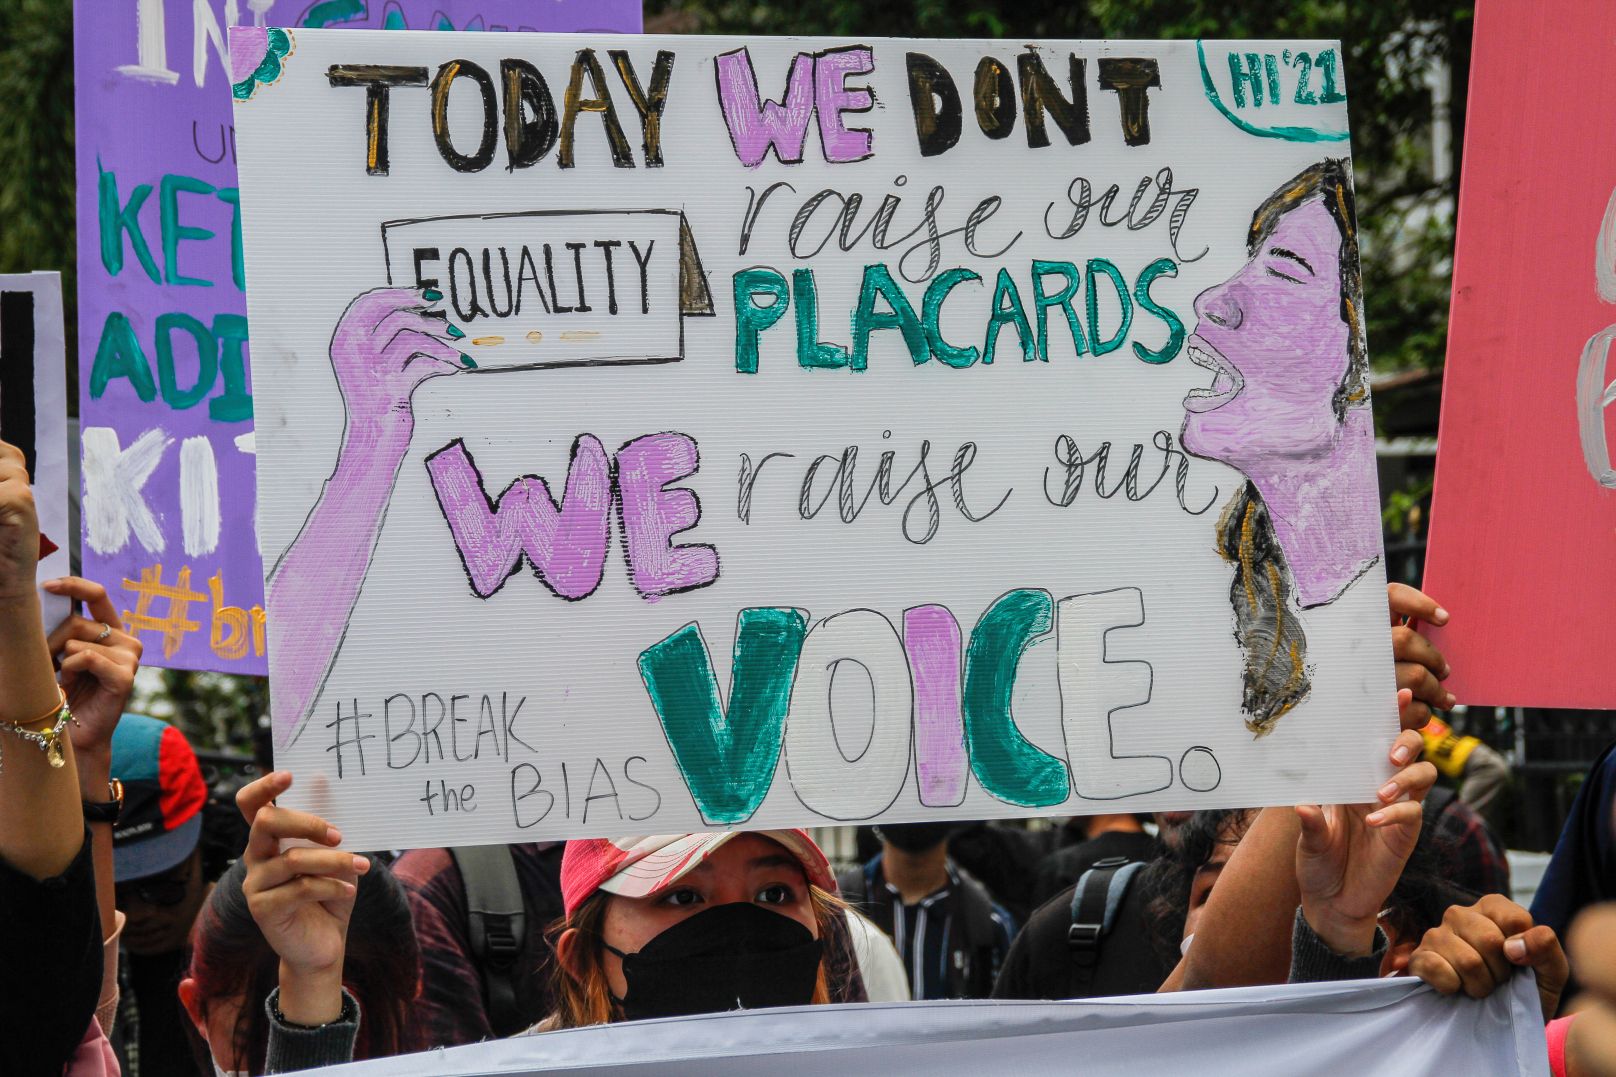 TODAY WE DONT
HI'21
raise our
EQUALITY
PLACARDS
WE raise our
VOICE.
#BREAK
the BIAS
IN
KET
ADI
KI
#br